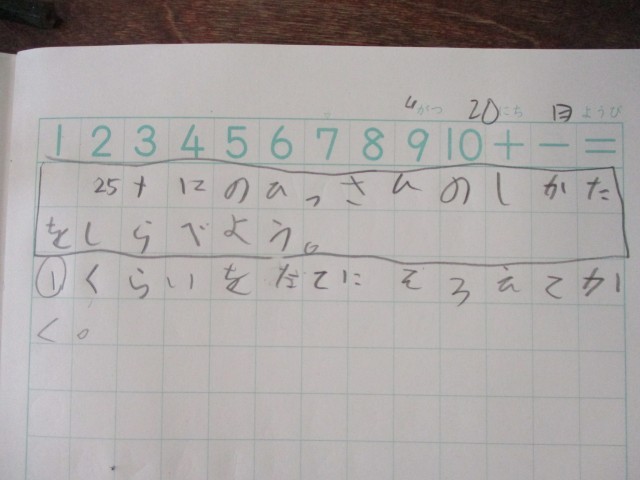 4がつ 20にち 日ようび
1 2 3 4 5 6 7 8 9 10 + - =
25+12のひっさんのしかた
をしらべよう。
①くらいをたてにそろえてか
く。